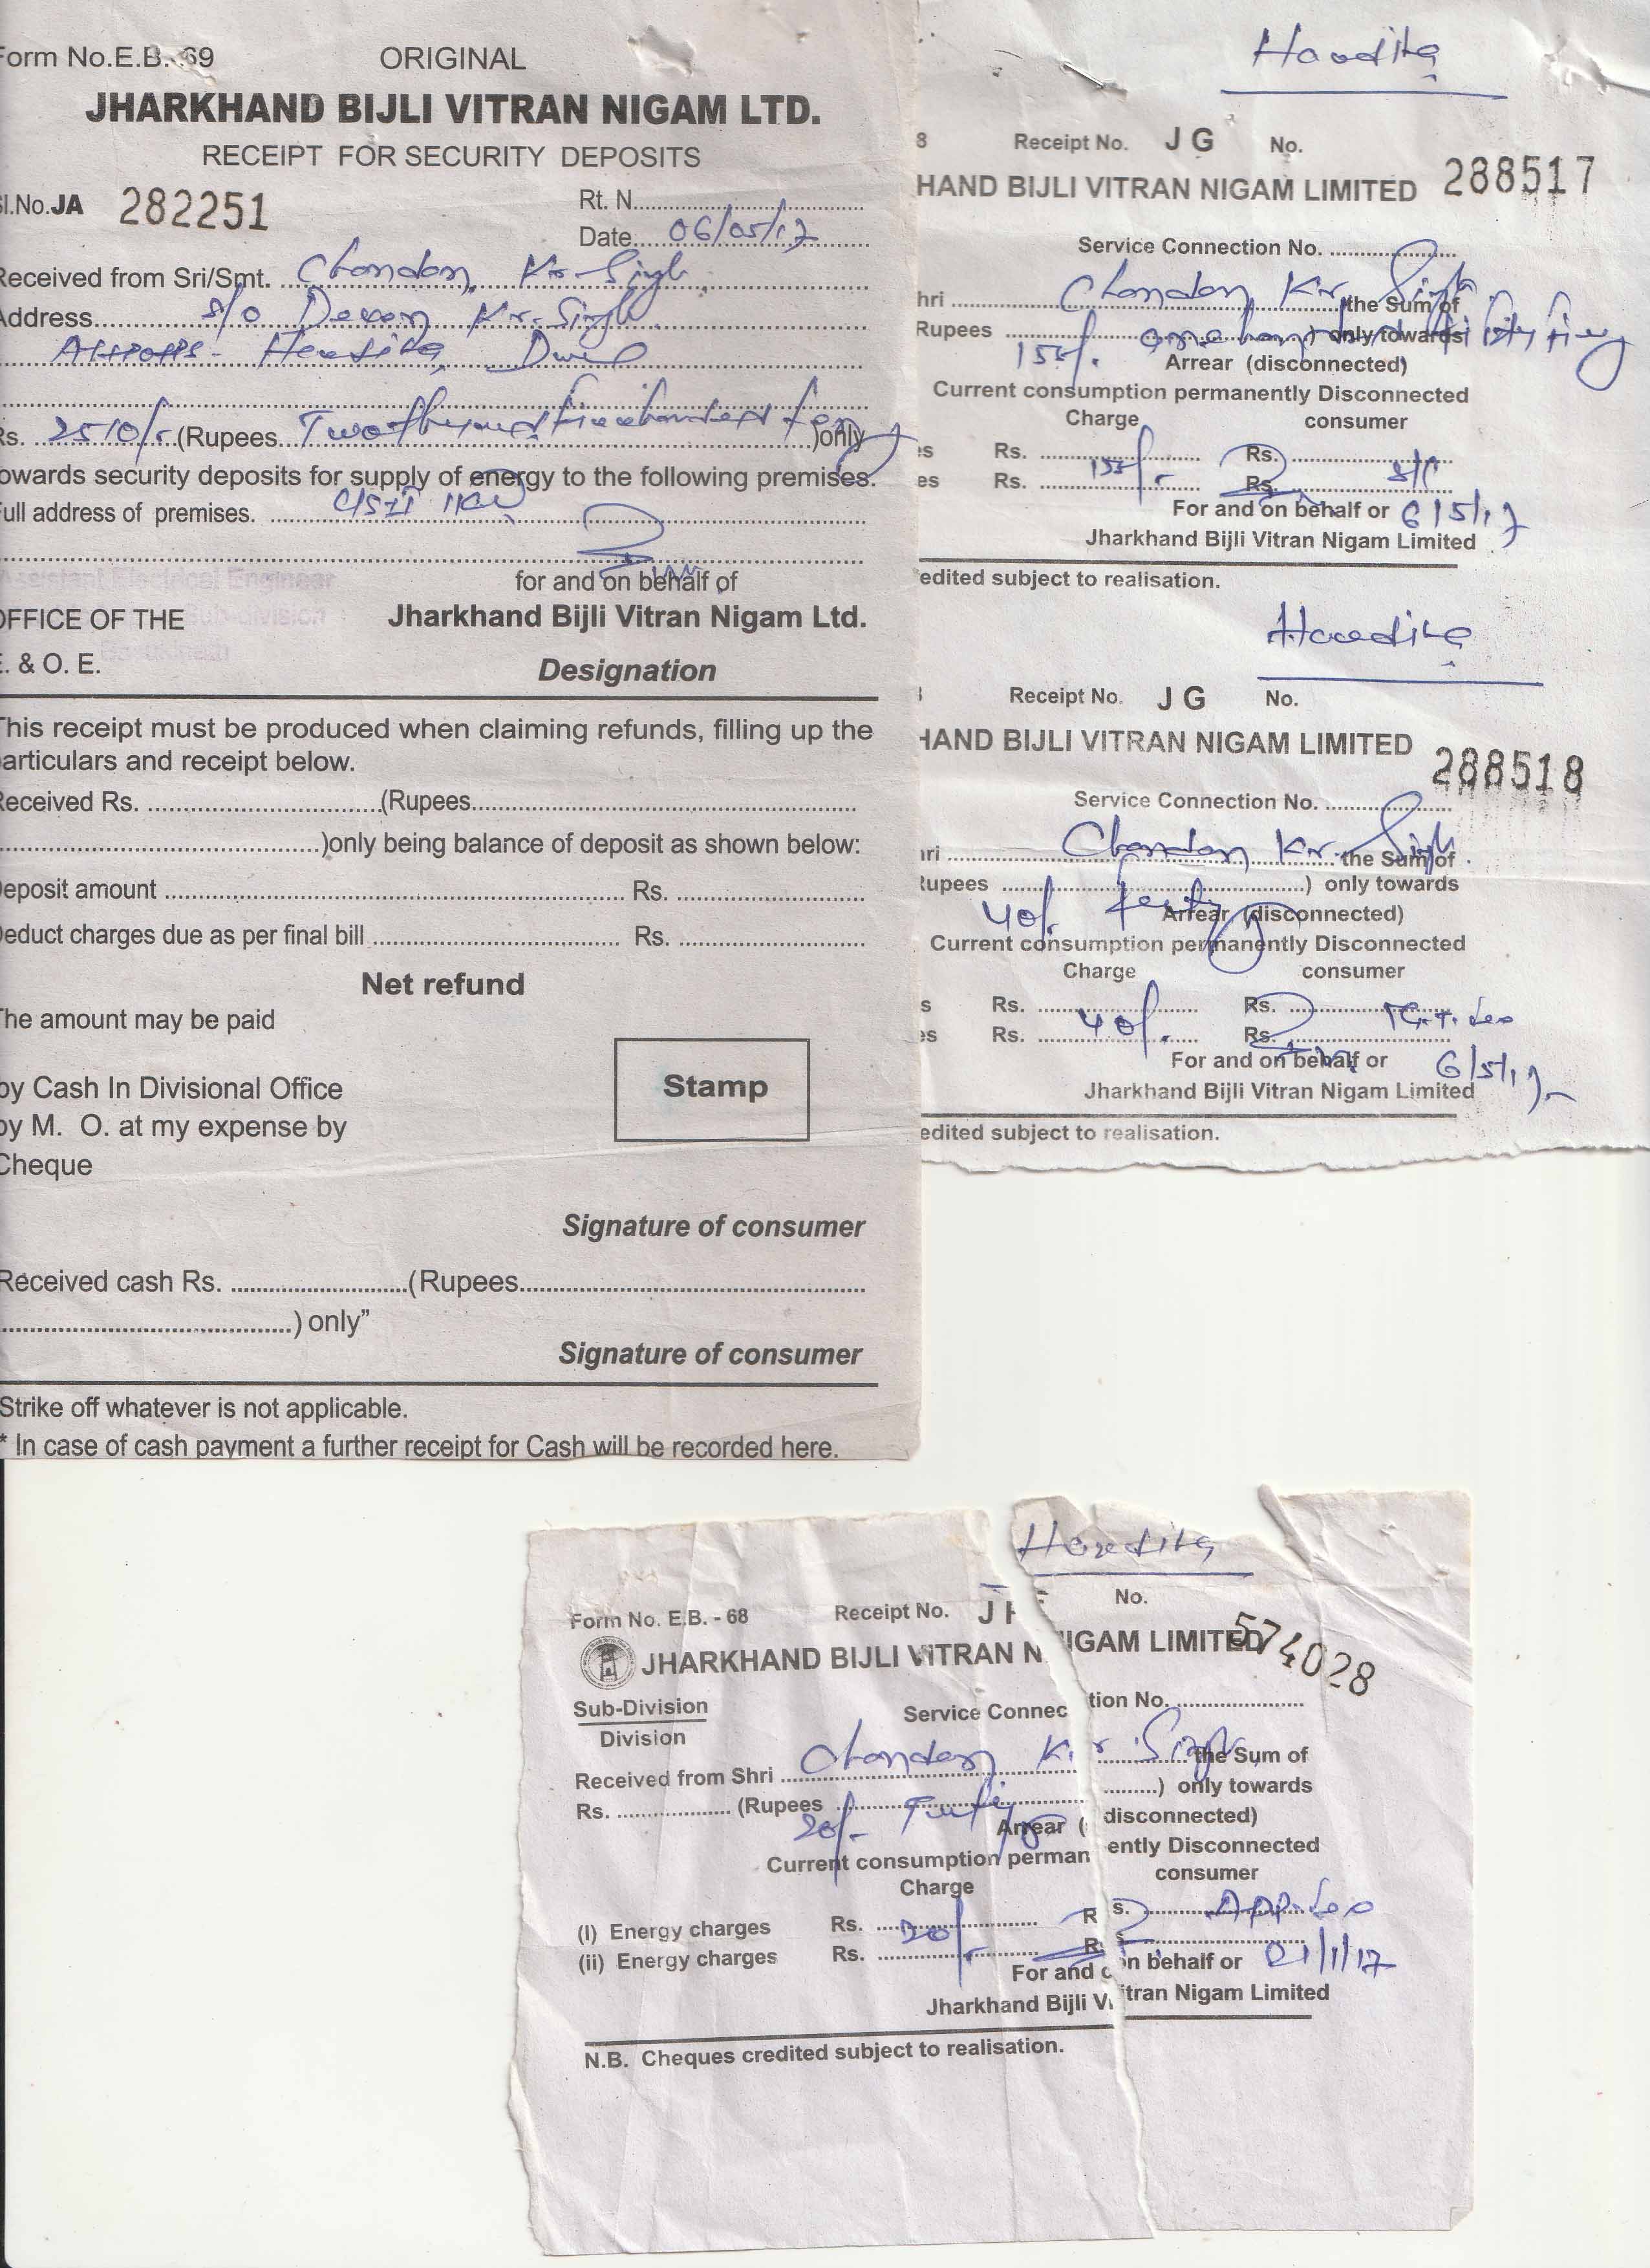 Form No.E.B.-69 ORIGINAL
JHARKHAND BIJLI VITRAN NIGAM LTD.
RECEIPT FOR SECURITY DEPOSITS
Sl.No.JA 282251 Rt. N
Date 06/05/17
Received from Sri/Smt. Chandan Kr. Singh
Address s/o Kr. Singh
Rs. 2510/- (Rupees )only
towards security deposits for supply of energy to the following premises.
Full address of premises.
for and on behalf of
Assistant Electrical Engineer
Sub-division
OFFICE OF THE Jharkhand Bijli Vitran Nigam Ltd.
E. & O. E. Designation
This receipt must be produced when claiming refunds, filling up the
particulars and receipt below.
Received Rs. (Rupees
)only being balance of deposit as shown below:
Deposit amount Rs.
Deduct charges due as per final bill Rs.
Net refund
The amount may be paid
by Cash In Divisional Office
by M. O. at my expense by
Cheque
Stamp
Signature of consumer
Received cash Rs. (Rupees
) only”
Signature of consumer
Strike off whatever is not applicable.
* In case of cash payment a further receipt for Cash will be recorded here.
8 Receipt No. J G No.
HAND BIJLI VITRAN NIGAM LIMITED 288517
Service Connection No.
hri Chandan Kr. Singh the Sum of
Rupees ) only towards
155/- Arrear (disconnected)
Current consumption permanently Disconnected
Charge consumer
es Rs. Rs.
es Rs. 155/- Rs.
For and on behalf or 6/5/17
Jharkhand Bijli Vitran Nigam Limited
edited subject to realisation.
Receipt No. J G No.
HAND BIJLI VITRAN NIGAM LIMITED 288518
Service Connection No.
hri Chandan Kr. Singh the Sum of
Rupees ) only towards
40/- Arrear (disconnected)
Current consumption permanently Disconnected
Charge consumer
s Rs. Rs.
es Rs. 40/- Rs.
For and on behalf or 6/5/17
Jharkhand Bijli Vitran Nigam Limited
edited subject to realisation.
Form No. E.B. - 68 Receipt No. No.
JHARKHAND BIJLI VITRAN NIGAM LIMITED 574028
Sub-Division Service Connection No.
Division
Received from Shri Chandan Kr Singh the Sum of
Rs. (Rupees ) only towards
20/- Arrear (disconnected)
Current consumption permanently Disconnected
Charge consumer
(I) Energy charges Rs. 20/- Rs.
(ii) Energy charges Rs. Rs.
For and on behalf or 21/1/17
Jharkhand Bijli Vitran Nigam Limited
N.B. Cheques credited subject to realisation.